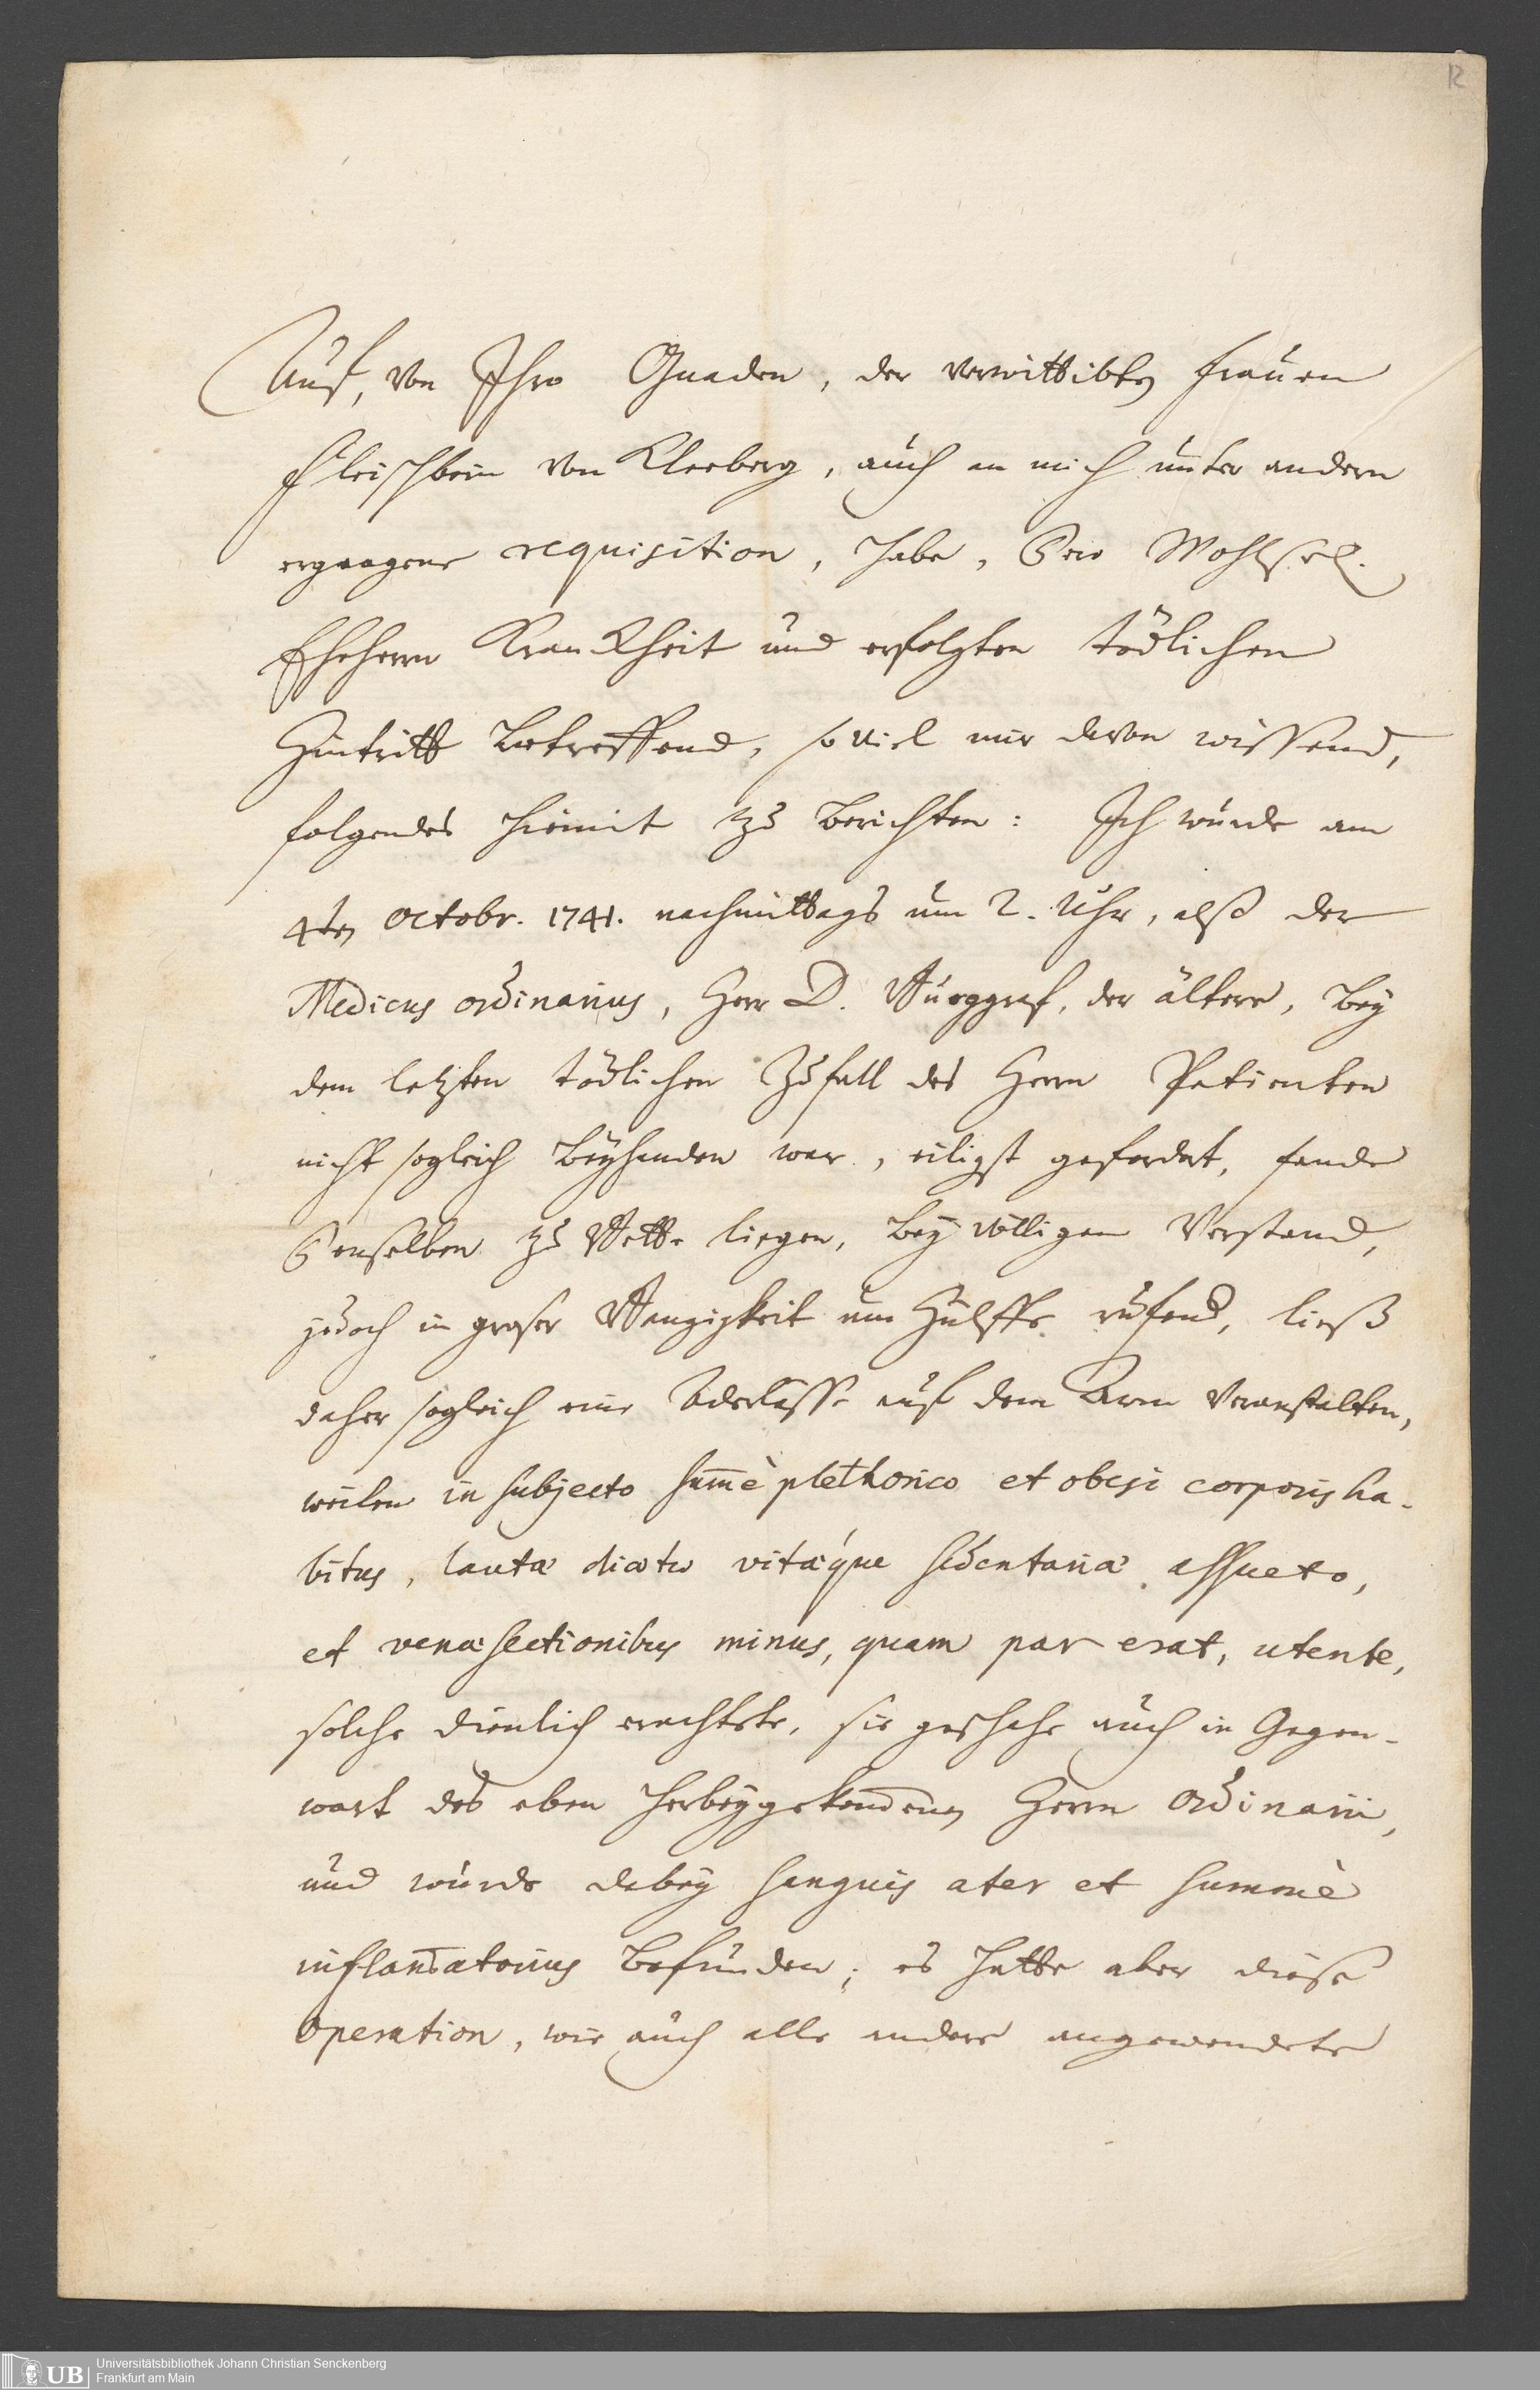 12
Auf, von Ihro Gnaden, der verwittibten Frauen
Fleischbein von Kleeberg, auch an mich unter andern
ergangene requisition, habe, Dero Wohlsel.
Eheherrn Kranckheit und erfolgten tödlichen
Hintritt betreffend, so viel mir davon wissend,
folgendes hiemit zu berichten: Ich wurde am
4ten Octobr. 1741. nachmittags um 2. Uhr, alß der
Medicus ordinarius, Herr D. Burggraf, der ältere, bey
dem letzten tödlichen Zufall des Herrn Patienten
nicht sogleich beyhanden war, eiligst gefordert, fande
Denselben zu Bette liegen, bey völligem Verstand,
jedoch in großer Bangigkeit um Hülffe rufend, ließ
daher sogleich eine Aderlässe auf dem Arm veranstalten,
weilen in subjecto sum̄è plethorico et obesi corporis ha-
bitus, lautæ diætæ vitæque sedentariæ assueto,
et venæsectionibus minus, quam par erat, utente,
solche dienlich erachtete, sie geschahe auch in Gegen-
wart des eben herbeygekom̄enen Herrn Ordinarii,
und wurde dabey sanguis ater et summè
inflam̄atorius befunden; es hatte aber diese
operation, wie auch alle andere angewendete
UB
Universitätsbibliothek Johann Christian Senckenberg
Frankfurt am Main